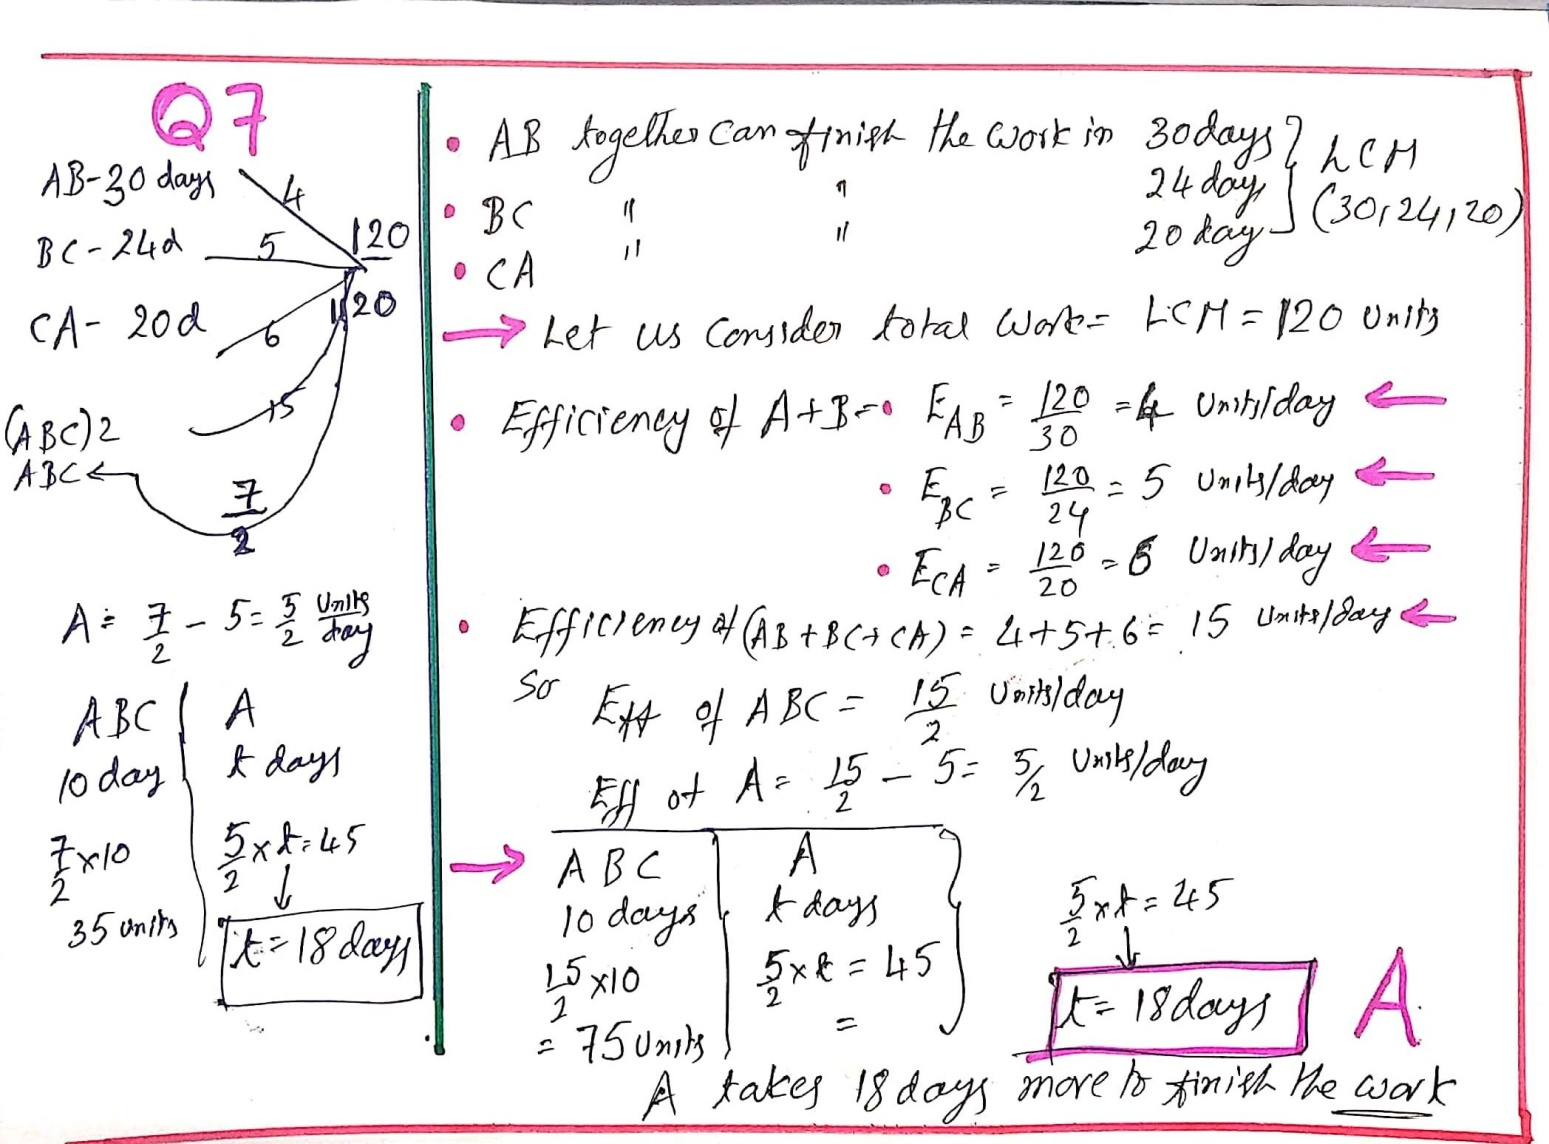 Q7
AB-30 days 4
BC-24d 5 120
CA- 20d 6 120
(ABC)2 15
ABC ← 7/2
A = 7/2 - 5 = 5/2 Units/day
ABC | A
10 day | t days
7/2 x10 | 5/2 x t = 45
35 units | t = 18 days
• AB together can finish the work in 30 days } LCM
• BC " " 24 days } (30,24,20)
• CA " " 20 day
→ Let us consider total work = LCM = 120 Units
• Efficiency of A+B = • E_AB = 120/30 = 4 Units/day ←
• E_BC = 120/24 = 5 Units/day ←
• E_CA = 120/20 = 6 Units/day ←
• Efficiency of (AB+BC+CA) = 4+5+6 = 15 Units/day ←
So Eff of ABC = 15/2 Units/day
Eff of A = 15/2 - 5 = 5/2 Units/day
→ ABC | A
10 days | t days
15/2 x10 | 5/2 x t = 45
= 75 Units | =
5/2 x t = 45
↓
t = 18 days A
A takes 18 days more to finish the work